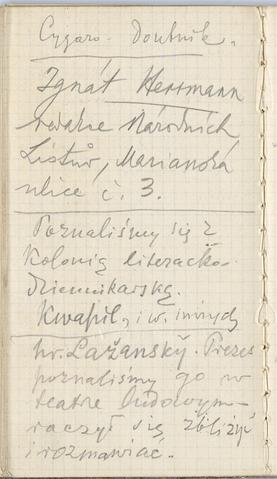 Cygaro - Doutník.
Ignát Herrmann
redakce Národních
Listův, Marianská
ulice č. 3.
Poznaliśmy się z
Kolonią literacko-
dziennikarską.
Kwapil, i w. innych
hr. Lažanský. Prezes
poznaliśmy go w
teatrze ludowym -
raczył się zbliżyć
i rozmawiać.